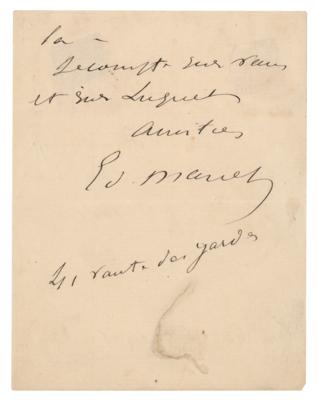 la -
Je compte sur vous
et sur Luguet
Amitiés
Ed. Manet
41 route des Gardes